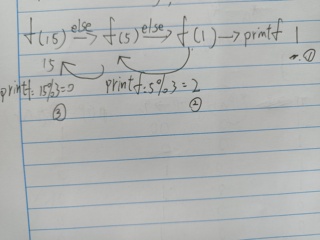 f(15) else→ f(5) else→ f(1) → printf 1
①
15
printf: 15%3=0 printf=5%3=2
③ ②